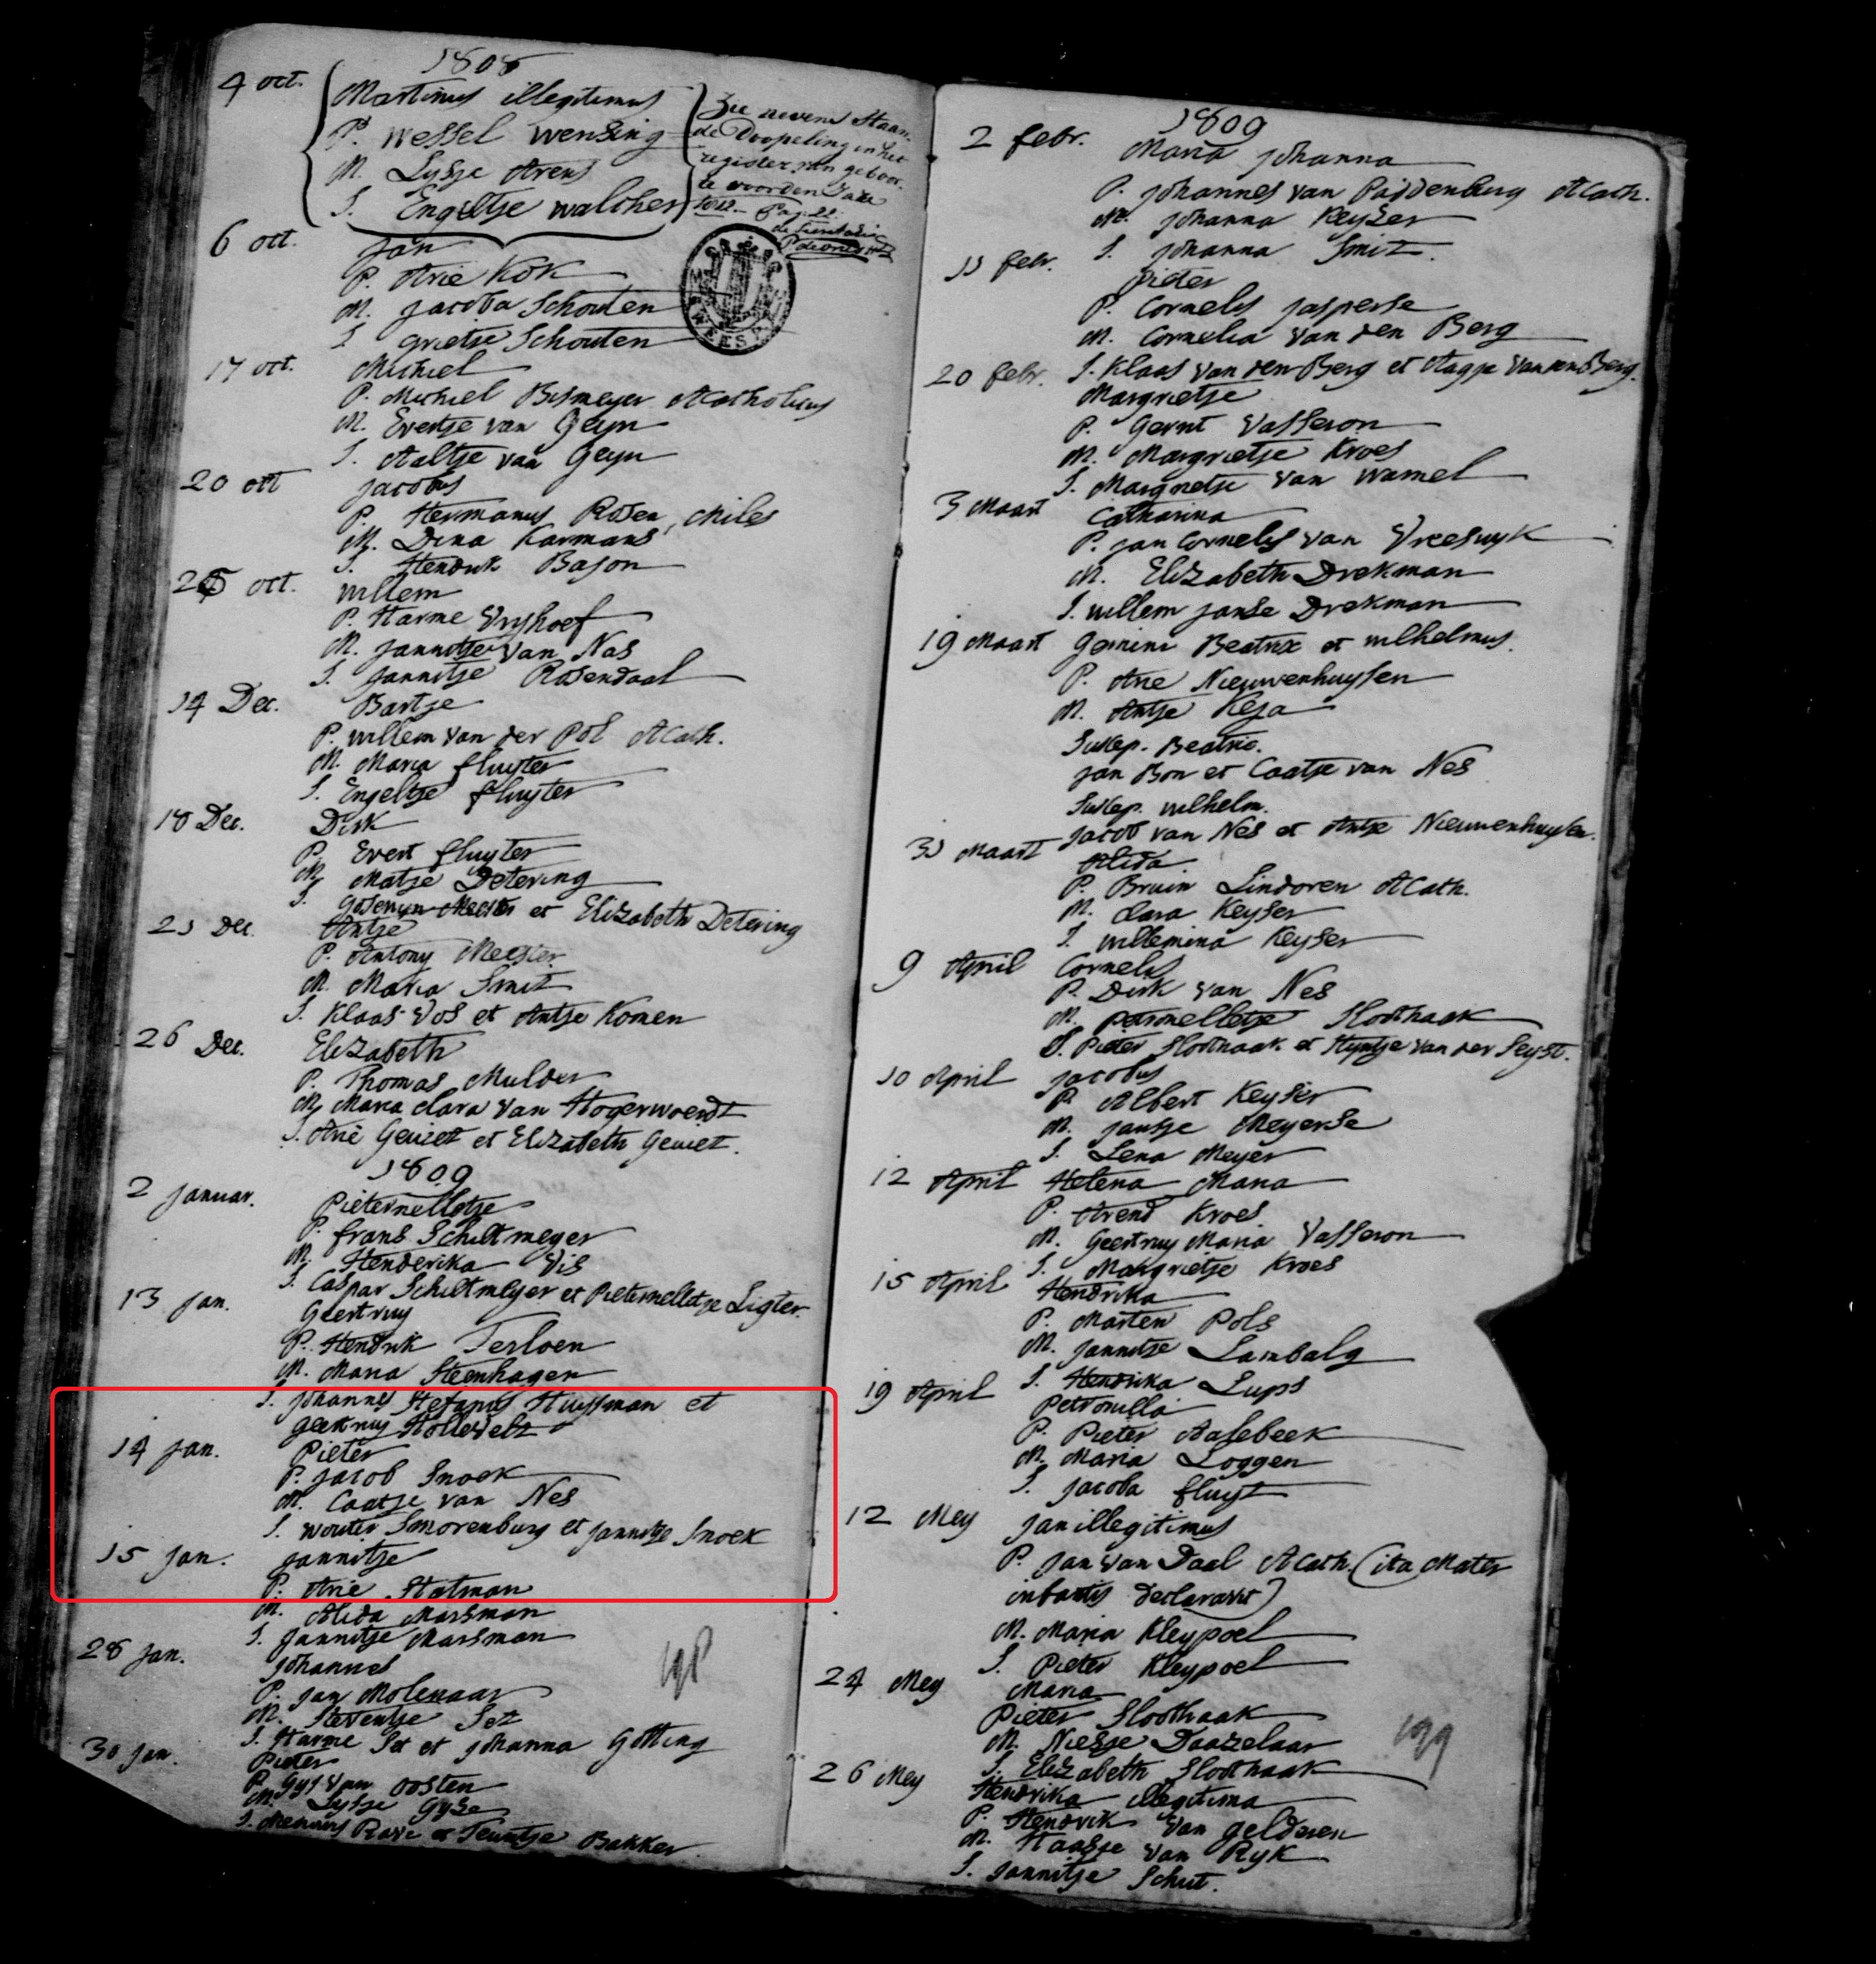 1808
4 oct. Martinus illegitimus
P. Wessel Wensing
M. Lysje Arens
S. Engeltje Walcher
Zie nevens staan-
de Doopeling in het
register van geboor-
te
Pag. 22.
6 oct. Jan
P. Arie Kok
M. Jacoba Schouten
S. Grietje Schouten
WEESP
17 oct. Michiel
P. Michiel Bysmeyer Acatholicus
M. Evertje van Geyn
S. Aaltje van Geyn
20 oct Jacobus
P. Hermanus Rosen, Miles
M. Dina Karmans
S. Hendrik Bason
25 oct. Willem
P. Harme Vryhoef
M. Jannitje van Nas
S. Jannitje Rosendaal
14 Dec. Bartje
P. Willem van der Pol ACath.
M. Maria Fluyter
S. Engeltje Fluyter
18 Dec. Dirk
P. Evert Fluyter
M. Matje Detering
S. Gosewyn Meester et Elizabeth Detering
21 Dec. Antje
P. Antony Meester
M. Maria Smit
S. Klaas Vos et Antje Komen
26 Dec. Elizabeth
P. Thomas Mulder
M. Maria Clara van Hogerwoerdt
S. Arie Geuzet et Elizabeth Geuzet.
1809
2 Januar. Pieternelletje
P. Frans Schiltmeyer
M. Henderika Vis
S. Caspar Schiltmeyer et Pieternelletje Ligter.
13 Jan. Geertruy
P. Hendrik Terloen
M. Maria Steenhagen
S. Johannes Stefanus Huysman et
Geertruy Hollevelt
14 Jan. Pieter
P. Jacob Snoek
M. Caatje van Nes
S. Wouter Smorenburg et Jannitje Snoek
15 Jan. Jannitje
P. Arie Hatman
M. Alida Marsman
S. Jannitje Marsman
28 Jan. Johannes
P. Jan Molenaar
M. Steventje Set
S. Harme Set et Johanna Gotting
30 Jan. Pieter
P. Gys van Oosten
M. Lysje Gyse
S. Mennus Rave et Teuntje Bakker
198
1809
2 Febr. Maria Johanna
P. Johannes van Paddenburg ACath.
M. Johanna Keyzer
S. Johanna Smit.
11 Febr. Pieter
P. Cornelis Jasperse
M. Cornelia van den Berg
S. Klaas van den Berg et Aagje van den Berg.
20 Febr. Margrietje
P. Gerrit Vasseron
M. Margrietje Kroes
S. Margrietje van Wamel
3 Maart Catharina
P. Jan Cornelis van Vreeswyk
M. Elizabeth Drekman
S. Willem Janse Drekman
19 Maart Gemini Beatrix et Wilhelmus.
P. Arie Nieuwenhuysen
M. Antje Keja
Suscep. Beatric.
Jan Bon et Caatje van Nes
Suscep. Wilhelm.
Jacob van Nes et Antje Nieuwenhuysen.
31 Maart Alida
P. Bruin Lindoren ACath.
M. Clara Keyser
S. Willemina Keyser
9 April Cornelis
P. Dirk van Nes
M. Petronelletje Sloothaak
S. Pieter Sloothaak et Styntje van der Seyst.
10 April Jacobus
P. Albert Keyser
M. Jansje Meyerse
S. Lena Meyer
12 April Helena Maria
P. Arend Kroes
M. Geertruy Maria Vasseron
S. Margrietje Kroes
15 April Hendrika
P. Marten Pols
M. Jannitje Lambalg
S. Hendrika Lups
19 April Petronilla
P. Pieter Aasebeek
M. Maria Loggen
S. Jacoba Fluyt
12 Mey Jan illegitimus
P. Jan van Daal ACath. (ita Mater
infantis declaravit)
M. Maria Kleypoel
S. Pieter Kleypoel
24 Mey Maria
Pieter Sloothaak
M. Niesje Daazelaar
S. Elizabeth Sloothaak
26 Mey Hendrika illegitima
P. Hendrik van Gelderen
M. Haasje van Ryk
S. Jannitje Schut.
199